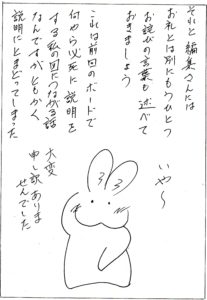 それと編集さんには
お礼とは別にもうひとつ
お詫びの言葉も述べて
おきましょう
これは前回のボードで
何やら必死に説明を
する私の図につながる話
なんですがともかく
説明にとまどってしまった
いや〜
大変
申し訳ありま
せんでした